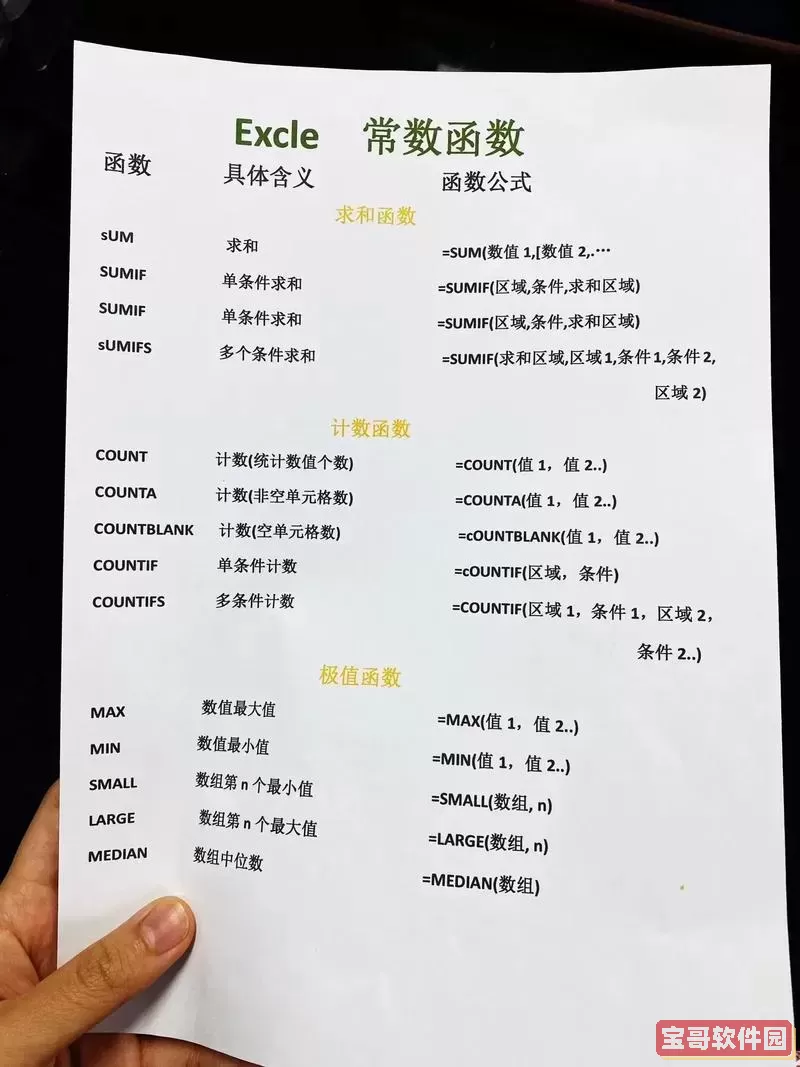 Excle 常数函数
函数 具体含义 函数公式
求和函数
sUM 求和 =SUM(数值1,[数值2,.…
SUMIF 单条件求和 =SUMIF(区域,条件,求和区域)
SUMIF 单条件求和 =SUMIF(区域,条件,求和区域)
sUMIFS 多个条件求和 =SUMIF(求和区域,区域1,条件1,条件2,
区域2)
计数函数
COUNT 计数(统计数值个数) =COUNT(值1，值2..)
COUNTA 计数(非空单元格数) =COUNTA(值1，值2..)
COUNTBLANK 计数(空单元格数) =cOUNTBLANK(值1，值2..)
COUNTIF 单条件计数 =cOUNTIF(区域，条件)
COUNTIFS 多条件计数 =COUNTIF(区域1，条件1，区域2，
条件2..)
极值函数
MAX 数值最大值 =MAX(值1，值2..)
MIN 数值最小值 =MIN(值1，值2..)
SMALL 数组第n个最小值 =SMALL(数组, n)
LARGE 数组第n个最大值 =LARGE(数组, n)
MEDIAN 数组中位数 =MEDIAN(数组)
宝哥软件园